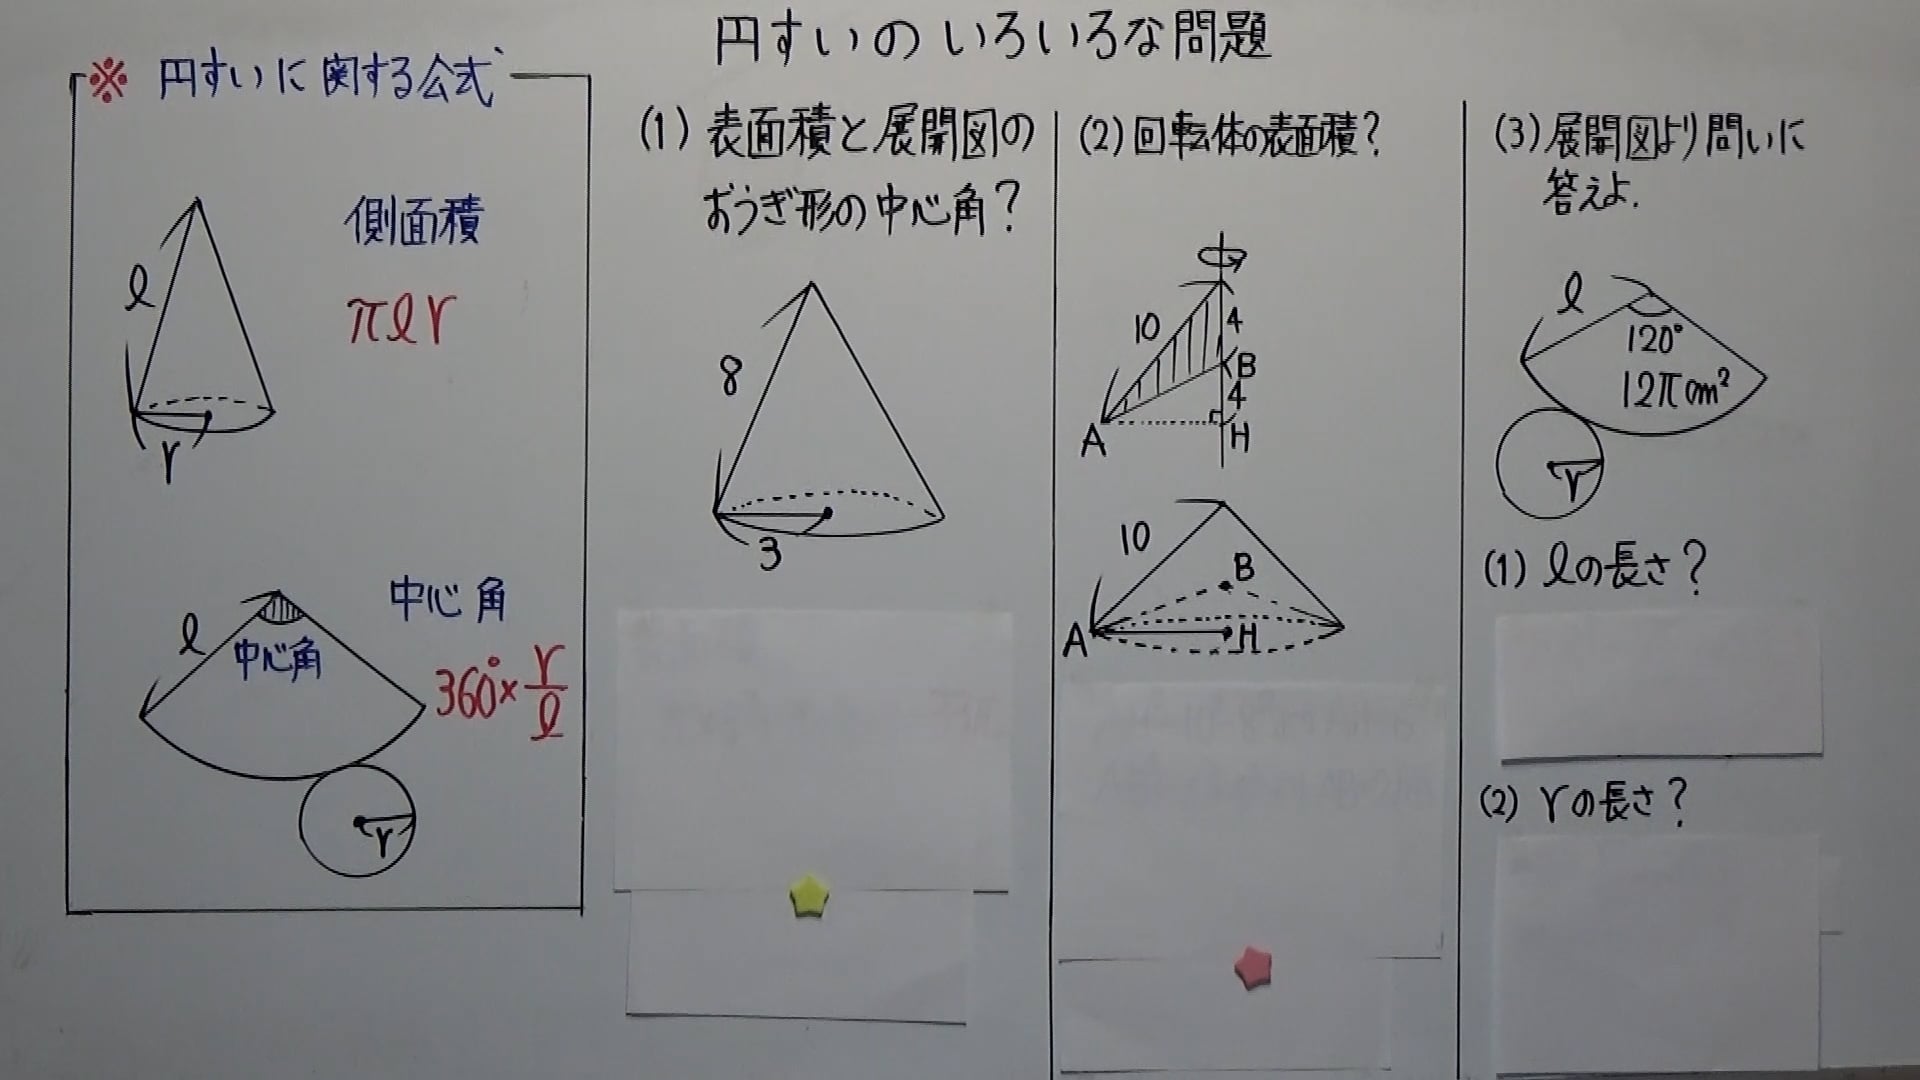 円すいのいろいろな問題
※ 円すいに関する公式
側面積
πℓr
ℓ
r
中心角
360°×r/ℓ
ℓ
中心角
r
(1) 表面積と展開図の
おうぎ形の中心角?
8
3
(2) 回転体の表面積?
10
4
B
4
A
H
10
B
A
H
(3) 展開図より問いに
答えよ.
ℓ
120°
12πcm²
r
(1) ℓの長さ?
(2) rの長さ?